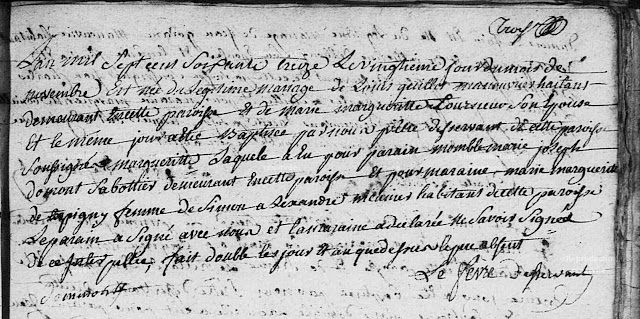 L'an mil Sept cens Soixante treize Le vingtieme jour du mois de
novembre Est née du Legitime mariage de Louis quillet manouvrier habitans
demeurant En cette paroisse et de marie margueritte Son Epouse
Et le même jour a été Baptisée par nous pretre desservant de cette paroisse
Soussigné margueritte Laquele a Eu pour parain marie joseph
domont Sabottier demeurant En cette paroisse et pour maraine marie margueritte
de femme de Simon alexandre habitant de cette paroisse
Le parain a Signé avec nous et la maraine a declarée ne Savoir Signée
de ce interpellée, fait double les jour et an que dessus le pere absent
Le fevre desservant